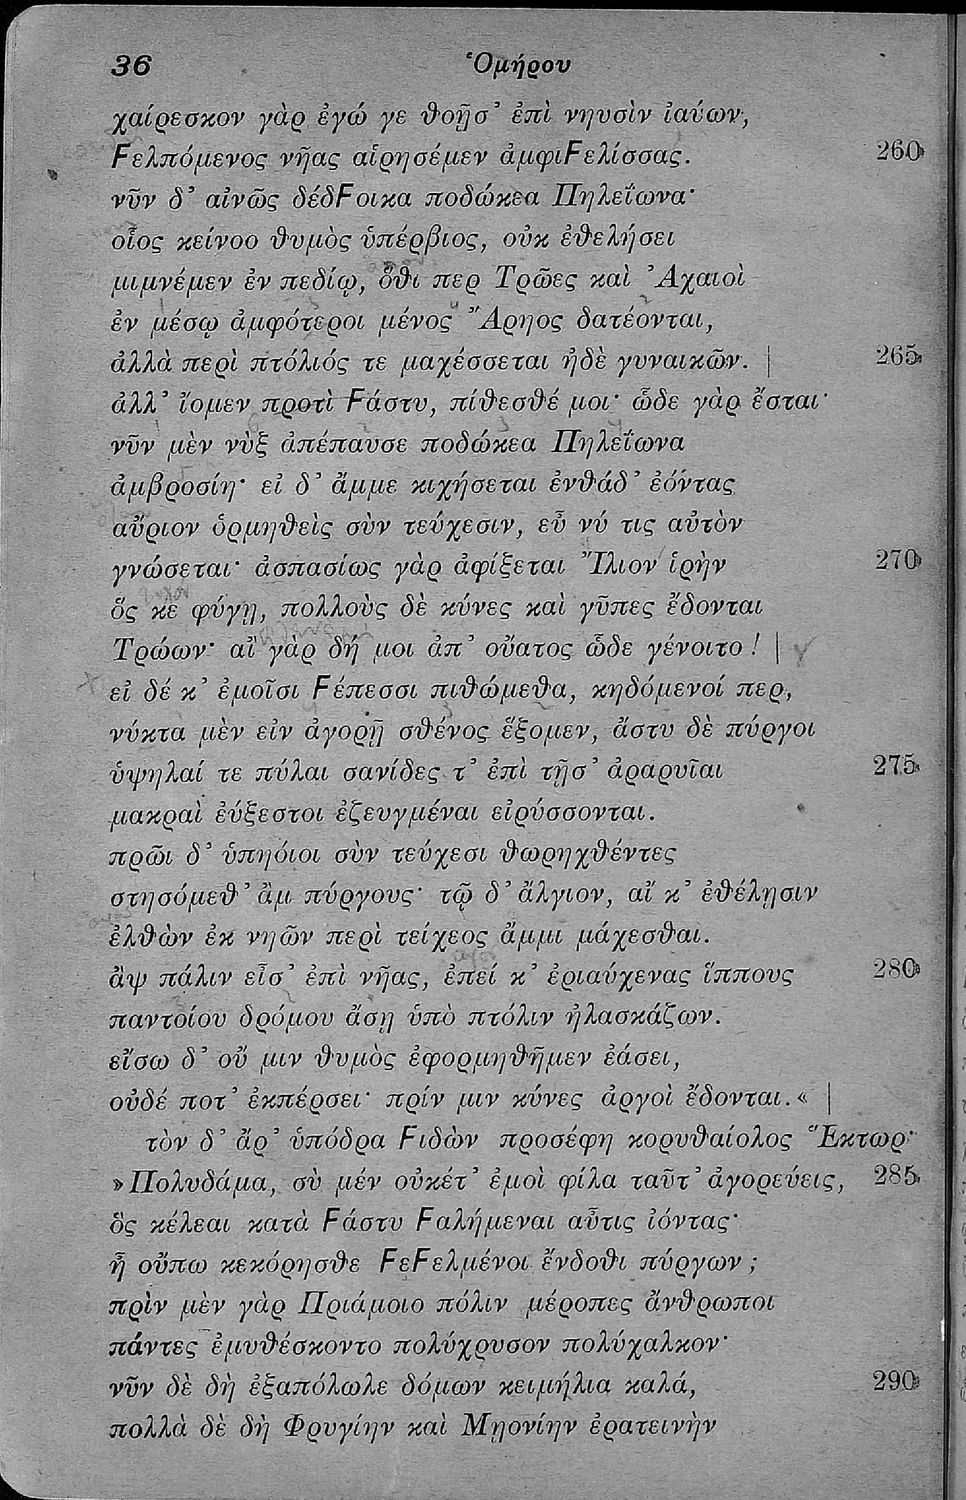 36 Ὁμήρου
χαίρεσκον γὰρ ἐγώ γε θοῇσ’ ἐπὶ νηυσὶν ἰαύων,
Ϝελπόμενος νῆας αἱρησέμεν ἀμφιϜελίσσας. 260
νῦν δ’ αἰνῶς δέδϜοικα ποδώκεα Πηλεΐωνα·
οἷος κείνοο θυμὸς ὑπέρβιος, οὐκ ἐθελήσει
μιμνέμεν ἐν πεδίῳ, ὅθι περ Τρῶες καὶ Ἀχαιοὶ
ἐν μέσῳ ἀμφότεροι μένος Ἄρηος δατέονται,
ἀλλὰ περὶ πτόλιός τε μαχέσσεται ἠδὲ γυναικῶν. | 265
ἀλλ’ ἴομεν προτὶ Ϝάστυ, πίθεσθέ μοι· ὧδε γὰρ ἔσται·
νῦν μὲν νὺξ ἀπέπαυσε ποδώκεα Πηλεΐωνα
ἀμβροσίη· εἰ δ’ ἄμμε κιχήσεται ἐνθάδ’ ἐόντας
αὔριον ὁρμηθεὶς σὺν τεύχεσιν, εὖ νύ τις αὐτὸν
γνώσεται· ἀσπασίως γὰρ ἀφίξεται Ἴλιον ἱρὴν 270
ὅς κε φύγῃ, πολλοὺς δὲ κύνες καὶ γῦπες ἔδονται
Τρώων· αἲ γὰρ δή μοι ἀπ’ οὔατος ὧδε γένοιτο! |
εἰ δέ κ’ ἐμοῖσι Ϝέπεσσι πιθώμεθα, κηδόμενοί περ,
νύκτα μὲν εἰν ἀγορῇ σθένος ἕξομεν, ἄστυ δὲ πύργοι
ὑψηλαί τε πύλαι σανίδες τ’ ἐπὶ τῇσ’ ἀραρυῖαι 275
μακραὶ ἐύξεστοι ἐζευγμέναι εἰρύσσονται.
πρῶι δ’ ὑπηόιοι σὺν τεύχεσι θωρηχθέντες
στησόμεθ’ ἂμ πύργους· τῷ δ’ ἄλγιον, αἴ κ’ ἐθέλῃσιν
ἐλθὼν ἐκ νηῶν περὶ τείχεος ἄμμι μάχεσθαι.
ἂψ πάλιν εἶσ’ ἐπὶ νῆας, ἐπεί κ’ ἐριαύχενας ἵππους 280
παντοίου δρόμου ἄσῃ ὑπὸ πτόλιν ἠλασκάζων.
εἴσω δ’ οὔ μιν θυμὸς ἐφορμηθῆμεν ἐάσει,
οὐδέ ποτ’ ἐκπέρσει· πρίν μιν κύνες ἀργοὶ ἔδονται.« |
τὸν δ’ ἄρ’ ὑπόδρα Ϝιδὼν προσέφη κορυθαίολος Ἕκτωρ·
»Πολυδάμα, σὺ μέν οὐκέτ’ ἐμοὶ φίλα ταῦτ’ ἀγορεύεις, 285
ὃς κέλεαι κατὰ Ϝάστυ Ϝαλήμεναι αὖτις ἰόντας·
ἦ οὔπω κεκόρησθε ϜεϜελμένοι ἔνδοθι πύργων;
πρὶν μὲν γὰρ Πριάμοιο πόλιν μέροπες ἄνθρωποι
πάντες ἐμυθέσκοντο πολύχρυσον πολύχαλκον·
νῦν δὲ δὴ ἐξαπόλωλε δόμων κειμήλια καλά, 290
πολλὰ δὲ δὴ Φρυγίην καὶ Μῃονίην ἐρατεινὴν